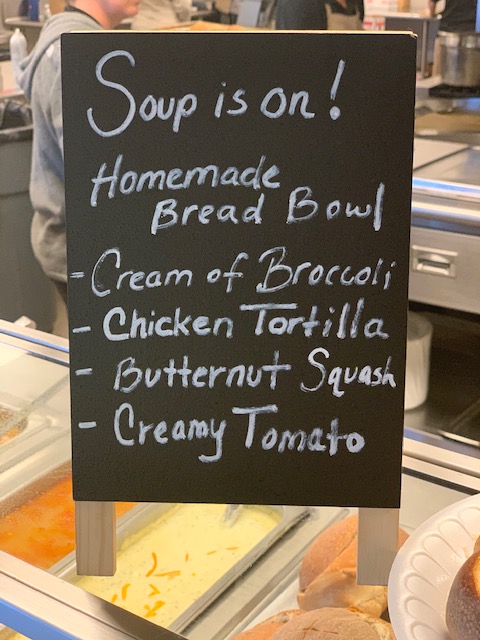 Soup is on!
Homemade
Bread Bowl
- Cream of Broccoli
- Chicken Tortilla
- Butternut Squash
- Creamy Tomato